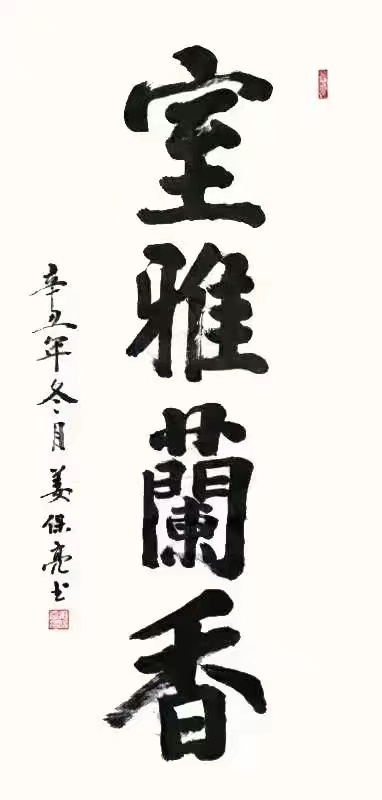 室雅蘭香
辛丑年冬月姜保亮书